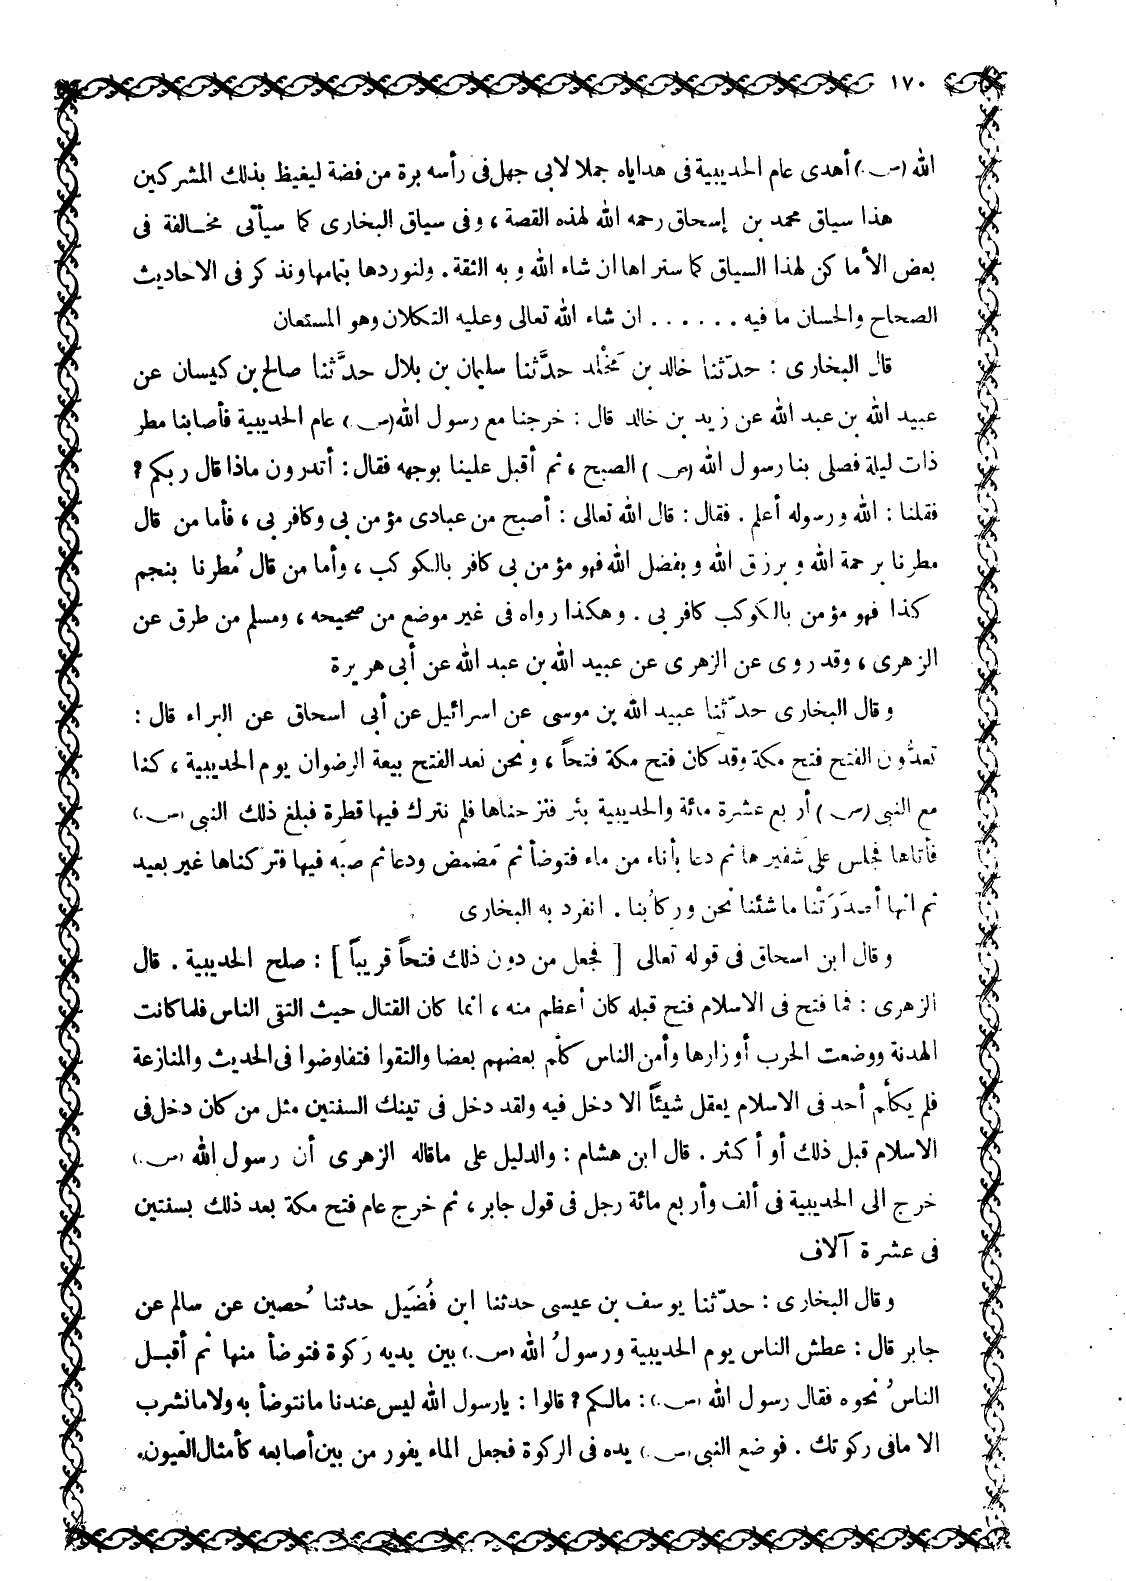 ١٧٠
الله (ص.) أهدى عام الحديبية فى هداياه جملا لابى جهل فى رأسه برة من فضة ليغيظ بذلك المشركين
هذا سياق محمد بن إسحاق رحمه الله لهذه القصة ، وفى سياق البخارى كما سيأتى مخالفة فى
بعض الأماكن لهذا السياق كما ستراها ان شاء الله وبه الثقة . ولنوردها بتمامها ونذكر فى الاحاديث
الصحاح والحسان ما فيه . . . . . . ان شاء الله تعالى وعليه التكلان وهو المستعان
قال البخارى : حدّثنا خالد بن مَخْلد حدَّثنا سليمان بن بلال حدَّثنا صالح بن كيسان عن
عبيد الله بن عبد الله عن زيد بن خالد قال : خرجنا مع رسول الله (ص.) عام الحديبية فأصابنا مطر
ذات ليلة فصلى بنا رسول الله (ص) الصبح ، ثم أقبل علينا بوجهه فقال : أتدرون ماذا قال ربكم ؟
فقلنا : الله ورسوله أعلم . فقال : قال الله تعالى : أصبح من عبادى مؤمن بى وكافر بى ، فأما من قال
مطرنا برحمة الله وبرزق الله وبفضل الله فهو مؤمن بى كافر بالكوكب ، وأما من قال مُطرنا بنجم
كذا فهو مؤمن بالكوكب كافر بى . وهكذا رواه فى غير موضع من صحيحه ، ومسلم من طرق عن
الزهرى ، وقد روى عن الزهرى عن عبيد الله بن عبد الله عن أبى هريرة
وقال البخارى حدّثنا عبيد الله بن موسى عن اسرائيل عن أبى اسحاق عن البراء قال :
تعدُّون الفتح فتح مكة وقد كان فتح مكة فتحاً ، ونحن نعد الفتح بيعة الرضوان يوم الحديبية ، كنا
مع النبى (ص) أربع عشرة مائة والحديبية بئر فنزحناها فلم نترك فيها قطرة فبلغ ذلك النبى (ص.)
فأتاها فجلس على شَفيرها ثم دعا بأناء من ماء فتوضأ ثم مَضمض ودعا ثم صبّه فيها فتركناها غير بعيد
ثم انها أصدَرَتْنا ما شئنا نحن وركابُنا . انفرد به البخارى
وقال ابن اسحاق فى قوله تعالى [ فجعل من دون ذلك فتحاً قريباً ] : صلح الحديبية . قال
الزهرى : فما فتح فى الاسلام فتح قبله كان أعظم منه ، انما كان القتال حيث التقى الناس فلما كانت
الهدنة ووضعت الحرب أوزارها وأمن الناس كلّم بعضهم بعضا والتقوا فتفاوضوا فى الحديث والمنازعة
فلم يكلّم أحد فى الاسلام يعقل شيئاً الا دخل فيه ولقد دخل فى تينك السنتين مثل من كان دخل فى
الاسلام قبل ذلك أو أكثر . قال ابن هشام : والدليل على ماقاله الزهرى أن رسول الله (ص.)
خرج الى الحديبية فى ألف وأربع مائة رجل فى قول جابر ، ثم خرج عام فتح مكة بعد ذلك بسنتين
فى عشرة آلاف
وقال البخارى : حدّثنا يوسف بن عيسى حدثنا ابن فُضَيل حدثنا حُصين عن سالم عن
جابر قال : عطش الناس يوم الحديبية ورسولُ الله (ص.) بين يديه رَكوة فتوضأ منها ثم أقبل
الناسُ نحوه فقال رسول الله (ص.) : مالكم ؟ قالوا : يارسول الله ليس عندنا مانتوضأ به ولا مانشرب
الا مافى ركوتك . فوضع النبى (ص.) يده فى الركوة فجعل الماء يفور من بين أصابعه كأمثال العيون.